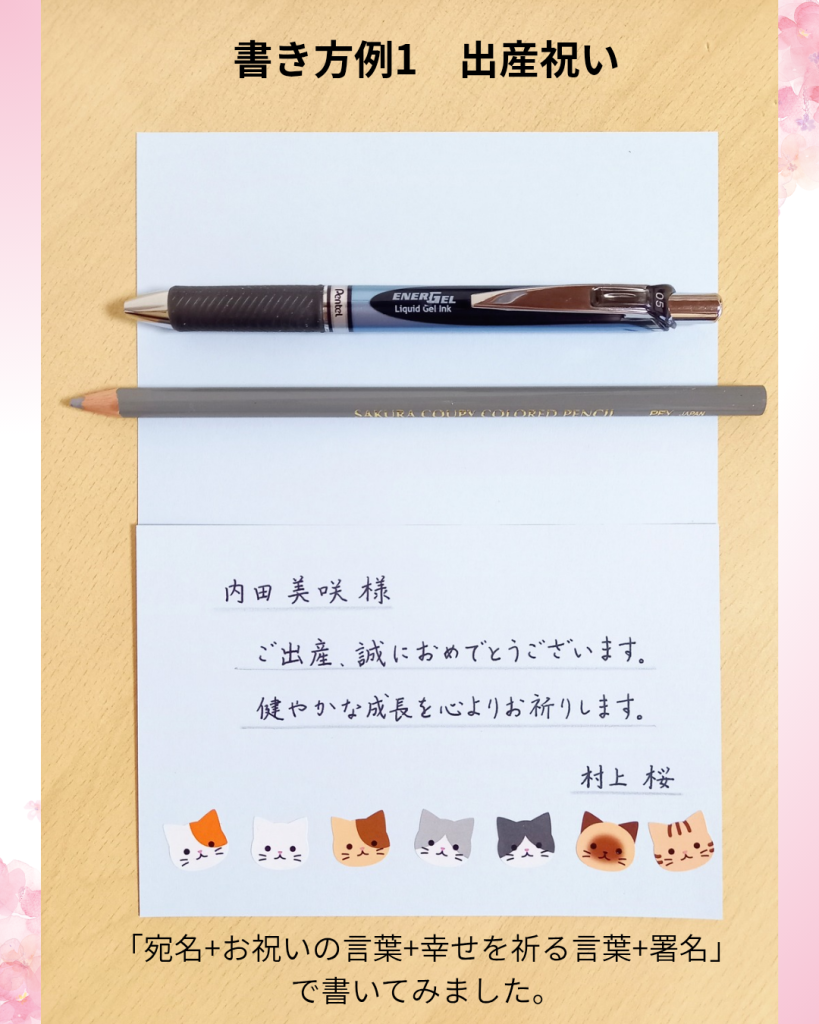 書き方例1　出産祝い
Pentel ENERGEL 05
Liquid Gel Ink
SAKURA COUPY COLORED PENCIL JAPAN
内田 美咲 様
ご出産、誠におめでとうございます。
健やかな成長を心よりお祈りします。
村上 桜
「宛名+お祝いの言葉+幸せを祈る言葉+署名」
で書いてみました。